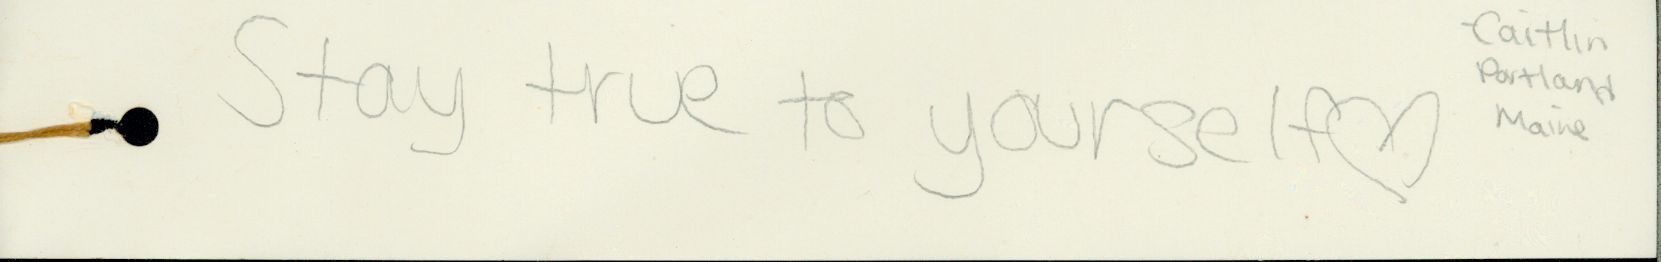 Stay true to yourself♡
Caitlin
Portland
Maine